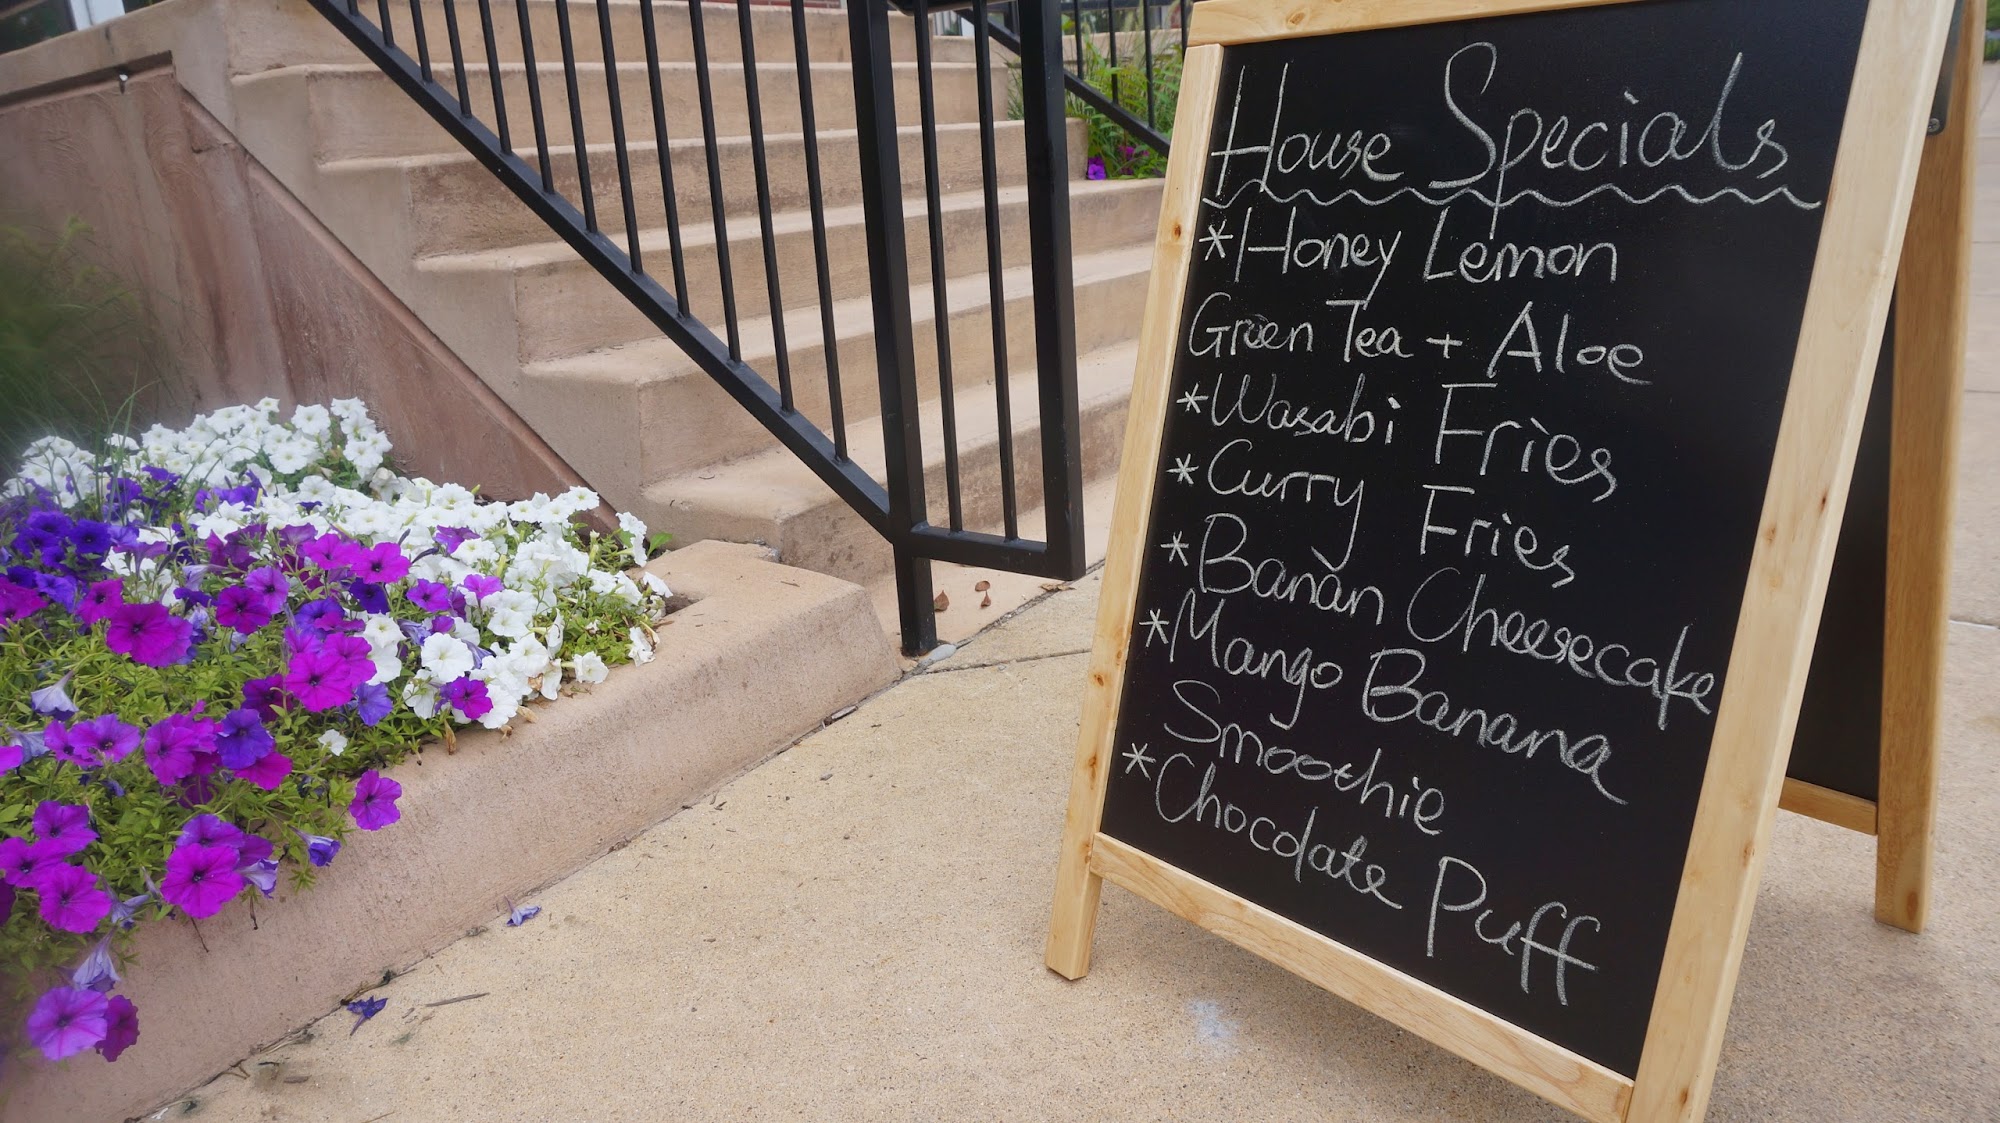 House Specials
*Honey Lemon
Green Tea + Aloe
*Wasabi Fries
*Curry Fries
*Banan Cheesecake
*Mango Banana
Smoothie
*Chocolate Puff